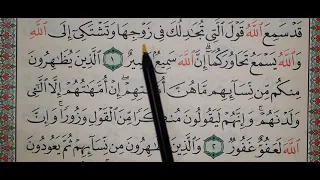 قَدْ سَمِعَ اللَّهُ قَوْلَ الَّتِي تُجَادِلُكَ فِي زَوْجِهَا وَتَشْتَكِي إِلَى اللَّهِ
وَاللَّهُ يَسْمَعُ تَحَاوُرَكُمَا إِنَّ اللَّهَ سَمِيعٌ بَصِيرٌ ١ الَّذِينَ يُظَاهِرُونَ
مِنكُم مِّن نِّسَائِهِم مَّا هُنَّ أُمَّهَاتِهِمْ إِنْ أُمَّهَاتُهُمْ إِلَّا اللَّائِي
وَلَدْنَهُمْ وَإِنَّهُمْ لَيَقُولُونَ مُنكَرًا مِّنَ الْقَوْلِ وَزُورًا وَإِنَّ
اللَّهَ لَعَفُوٌّ غَفُورٌ ٢ وَالَّذِينَ يُظَاهِرُونَ مِن نِّسَائِهِمْ ثُمَّ يَعُودُونَ